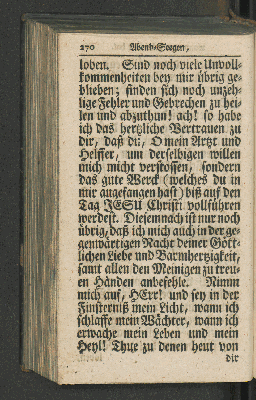 270 Abend-Seegen,
loben. Sind noch viele Unvoll-
kommenheiten bey mir übrig ge-
blieben; finden sich noch unzeh-
lige Fehler und Gebrechen zu hei-
len und abzuthun! ach! so habe
ich das hertzliche Vertrauen zu
dir, daß du, O mein Artzt und
Helffer, um derselbigen willen
mich nicht verstossen, sondern
das gute Werck (welches du in
mir angefangen hast) biß auf den
Tag JESU Christi vollführen
werdest. Diesemnach ist nur noch
übrig, daß ich mich auch in der ge-
genwärtigen Nacht deiner Gött-
lichen Liebe und Barmhertzigkeit,
samt allen den Meinigen zu treu-
en Händen anbefehle. Nimm
mich auf, HErr! und sey in der
Finsterniß mein Licht, wann ich
schlaffe mein Wächter, wann ich
erwache mein Leben und mein
Heyl! Thue zu denen heut von
dir